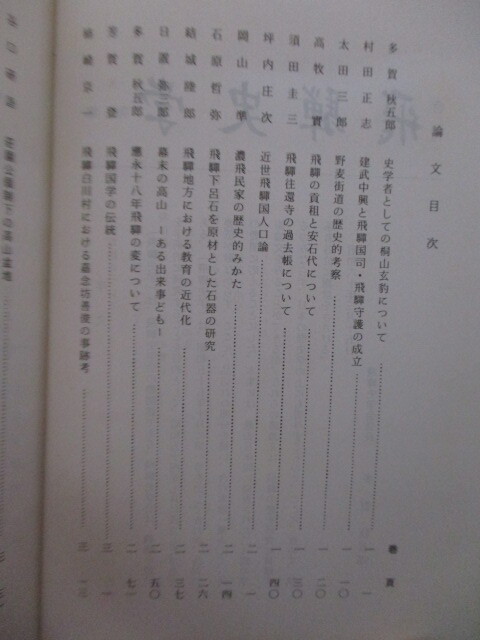 論文目次
巻 頁
多賀秋五郎 史学者としての桐山玄豹について 一 一
村田正志 建武中興と飛騨国司・飛騨守護の成立 一 一〇
太田三郎 野麦街道の歴史的考察 一 二〇
高牧實 飛騨の貢租と安石代について 一 三〇
須田圭三 飛騨往還寺の過去帳について 一 四〇
坪内庄次 近世飛騨国人口論 二 一
岡山準 濃飛民家の歴史的みかた 二 一四
石原哲弥 飛騨下呂石を原材とした石器の研究 二 二六
結城陸郎 飛騨地方における教育の近代化 二 三七
日置弥郎 幕末の高山 ーある出来事どもー 二 五〇
多賀秋五郎 應永十八年飛騨の変について 二 七一
芳賀登 飛騨国学の伝統 三 一
飛騨白川村における嘉念坊善俊の事跡考 三 一三